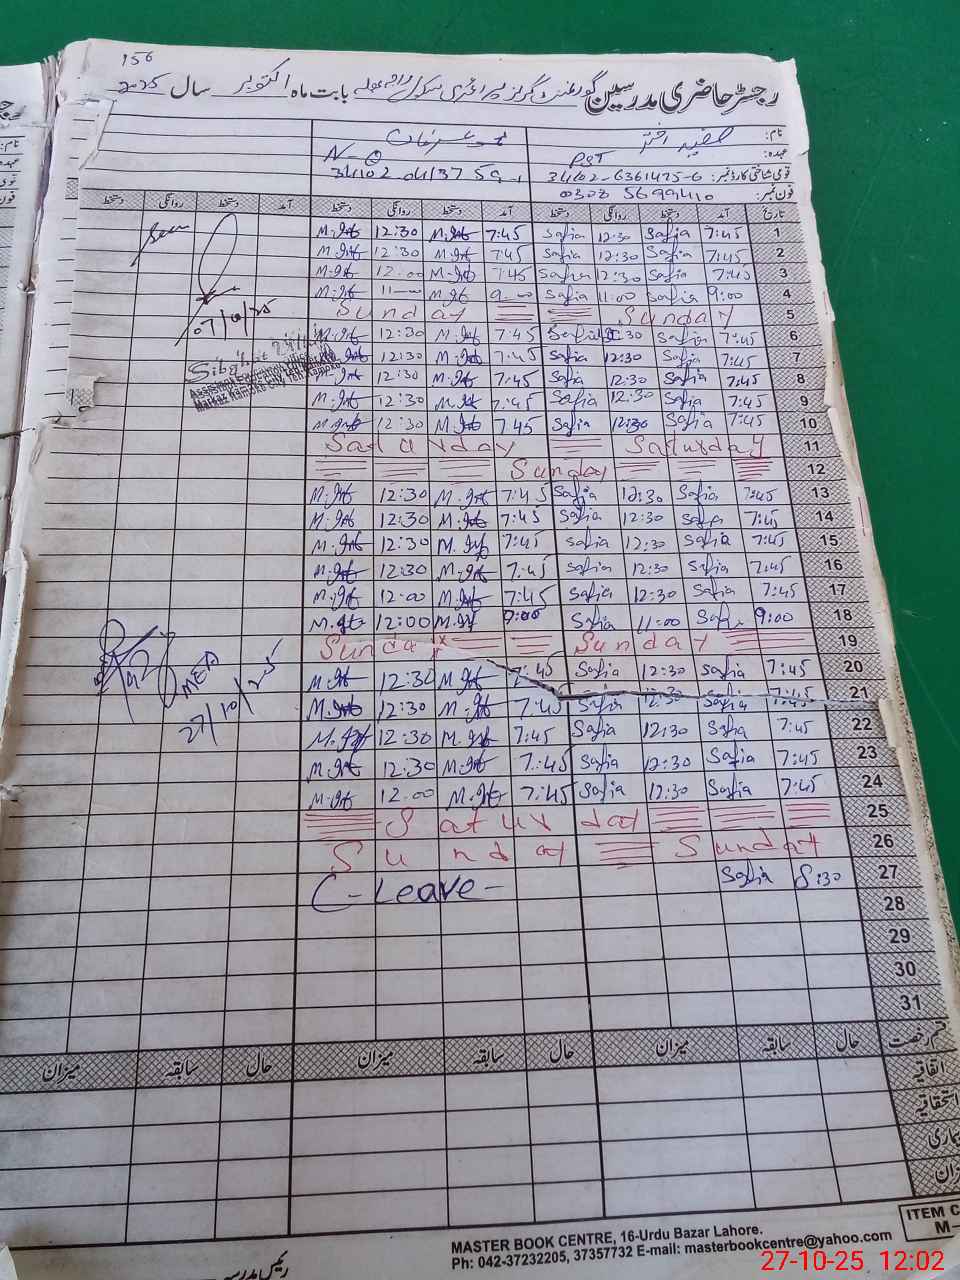 156
رجسٹر حاضری مدرسین گورنمنٹ گرلز پرائمری سکول بابت ماہ اکتوبر سال 2025
نام: صفیہ اختر
عہدہ: PST N-Q
قومی شناختی کارڈ نمبر: 34102-6361475-6
فون نمبر: 0308 5699410
تاریخ آمد دستخط روانگی دستخط آمد دستخط روانگی دستخط آمد دستخط روانگی دستخط
1 7:45 Safia 12:30 Safia 7:45 M.Inf 12:30 M.Inf
2 7:45 Safia 12:30 Safia 7:45 M.Inf 12:30 M.Inf
3 7:45 Safia 12:30 Safia 7:45 M.Inf 12:00 M.Inf
4 9:00 Safia 11:00 Safia 9:00 M.Inf 11:00 M.Inf
5 Sunday Sunday
6 7:45 Safia 12:30 Safia 7:45 M.Inf 12:30 M.Inf
7 7:45 Safia 12:30 Safia 7:45 M.Inf 12:30 M.Inf
8 7:45 Safia 12:30 Safia 7:45 M.Inf 12:30 M.Inf
9 7:45 Safia 12:30 Safia 7:45 M.Inf 12:30 M.Inf
10 7:45 Safia 12:30 Safia 7:45 M.Inf 12:30 M.Inf
11 Saturday Saturday
12 Sunday
13 7:45 Safia 12:30 Safia 7:45 M.Inf 12:30 M.Inf
14 7:45 Safia 12:30 Safia 7:45 M.Inf 12:30 M.Inf
15 7:45 Safia 12:30 Safia 7:45 M.Inf 12:30 M.Inf
16 7:45 Safia 12:30 Safia 7:45 M.Inf 12:30 M.Inf
17 7:45 Safia 12:30 Safia 7:45 M.Inf 12:00 M.Inf
18 9:00 Safia 11:00 Safia 9:00 M.Inf 12:00 M.Inf
19 Sunday Sunday
20 7:45 Safia 12:30 Safia 7:45 M.Inf 12:30 M.Inf
21 7:45 Safia 12:30 Safia 7:45 M.Inf 12:30 M.Inf
22 7:45 Safia 12:30 Safia 7:45 M.Inf 12:30 M.Inf
23 7:45 Safia 12:30 Safia 7:45 M.Inf 12:30 M.Inf
24 7:45 Safia 12:30 Safia 7:45 M.Inf 12:00 M.Inf
25 Saturday
26 Sunday Sunday
27 8:30 Safia C-Leave-
28
29
30
31
Seen
Assistant Education Officer
MEA
27/10/25
قسم رخصت حال سابقہ میزان حال سابقہ میزان حال سابقہ میزان
اتفاقیہ
استحقاقیہ
بیماری
میزان
رئیس مدرسہ
MASTER BOOK CENTRE, 16-Urdu Bazar Lahore.
Ph: 042-37232205, 37357732 E-mail: masterbookcentre@yahoo.com
ITEM C
M-
27-10-25 12:02